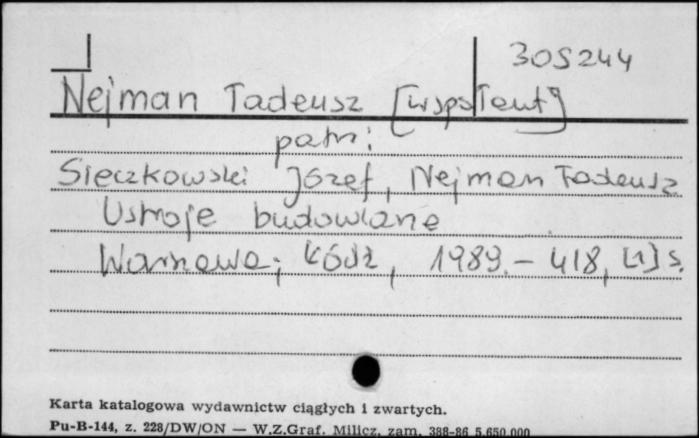 305244
Nejman Tadeusz [współaut]
patrz:
Sieczkowski Józef, Nejman Tadeusz
Ustroje budowlane
Warszawa; Łódź, 1989. - 418, [1] s.
Karta katalogowa wydawnictw ciągłych i zwartych.
Pu-B-144, z. 228/DW/ON — W.Z.Graf. Milicz, zam. 388-86 5.650.000